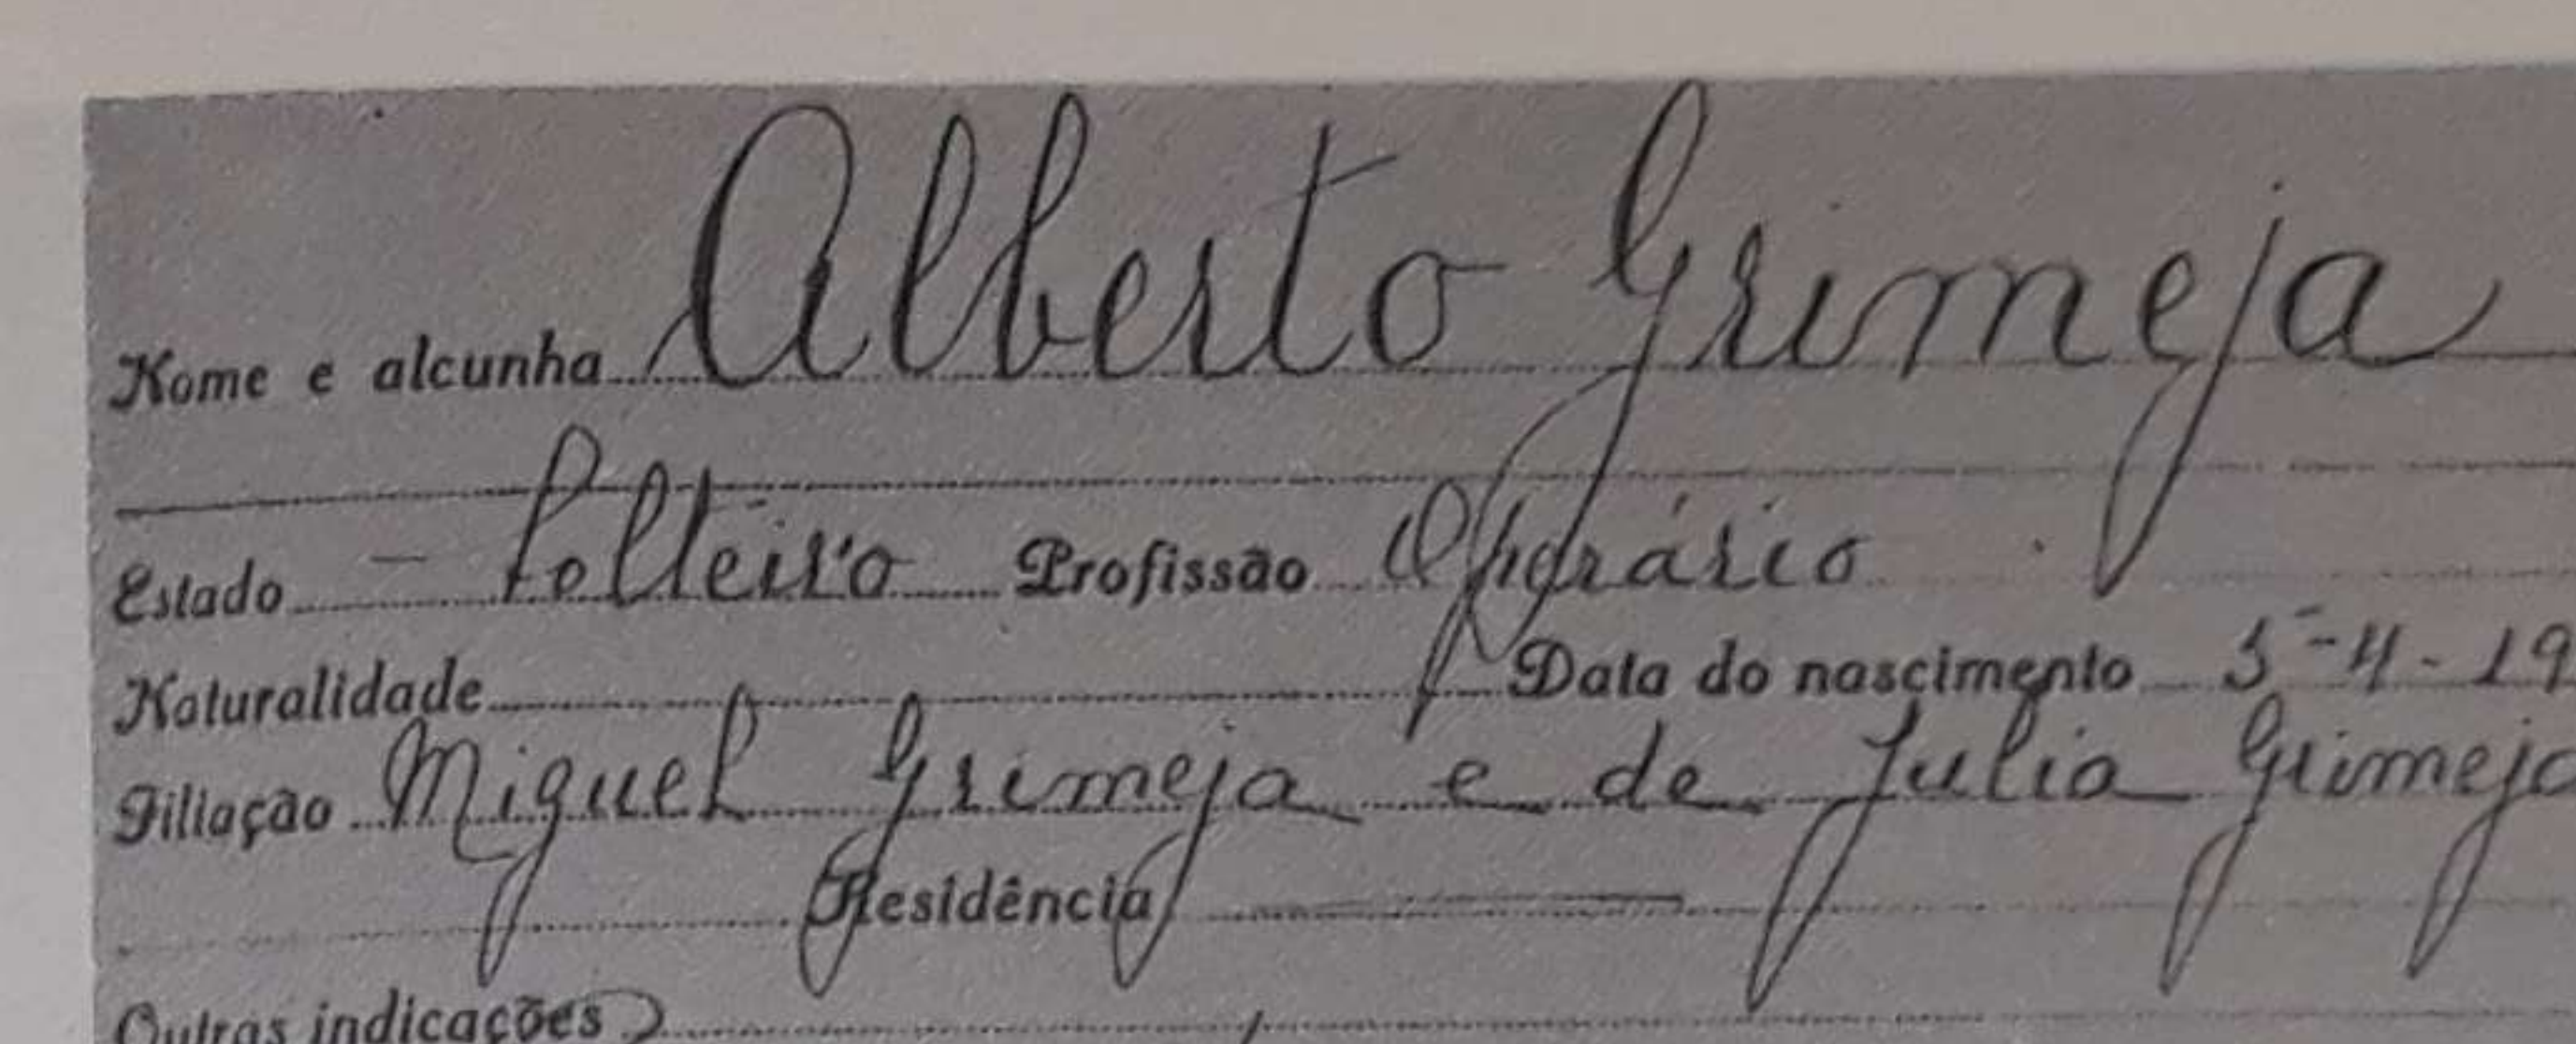 Nome e alcunha Alberto Grimeja
Estado - Solteiro Profissão Operário
Naturalidade Data do nascimento 5-4-19
Filiação Miguel Grimeja e de Julia Grimeja
Residência
Outras indicações